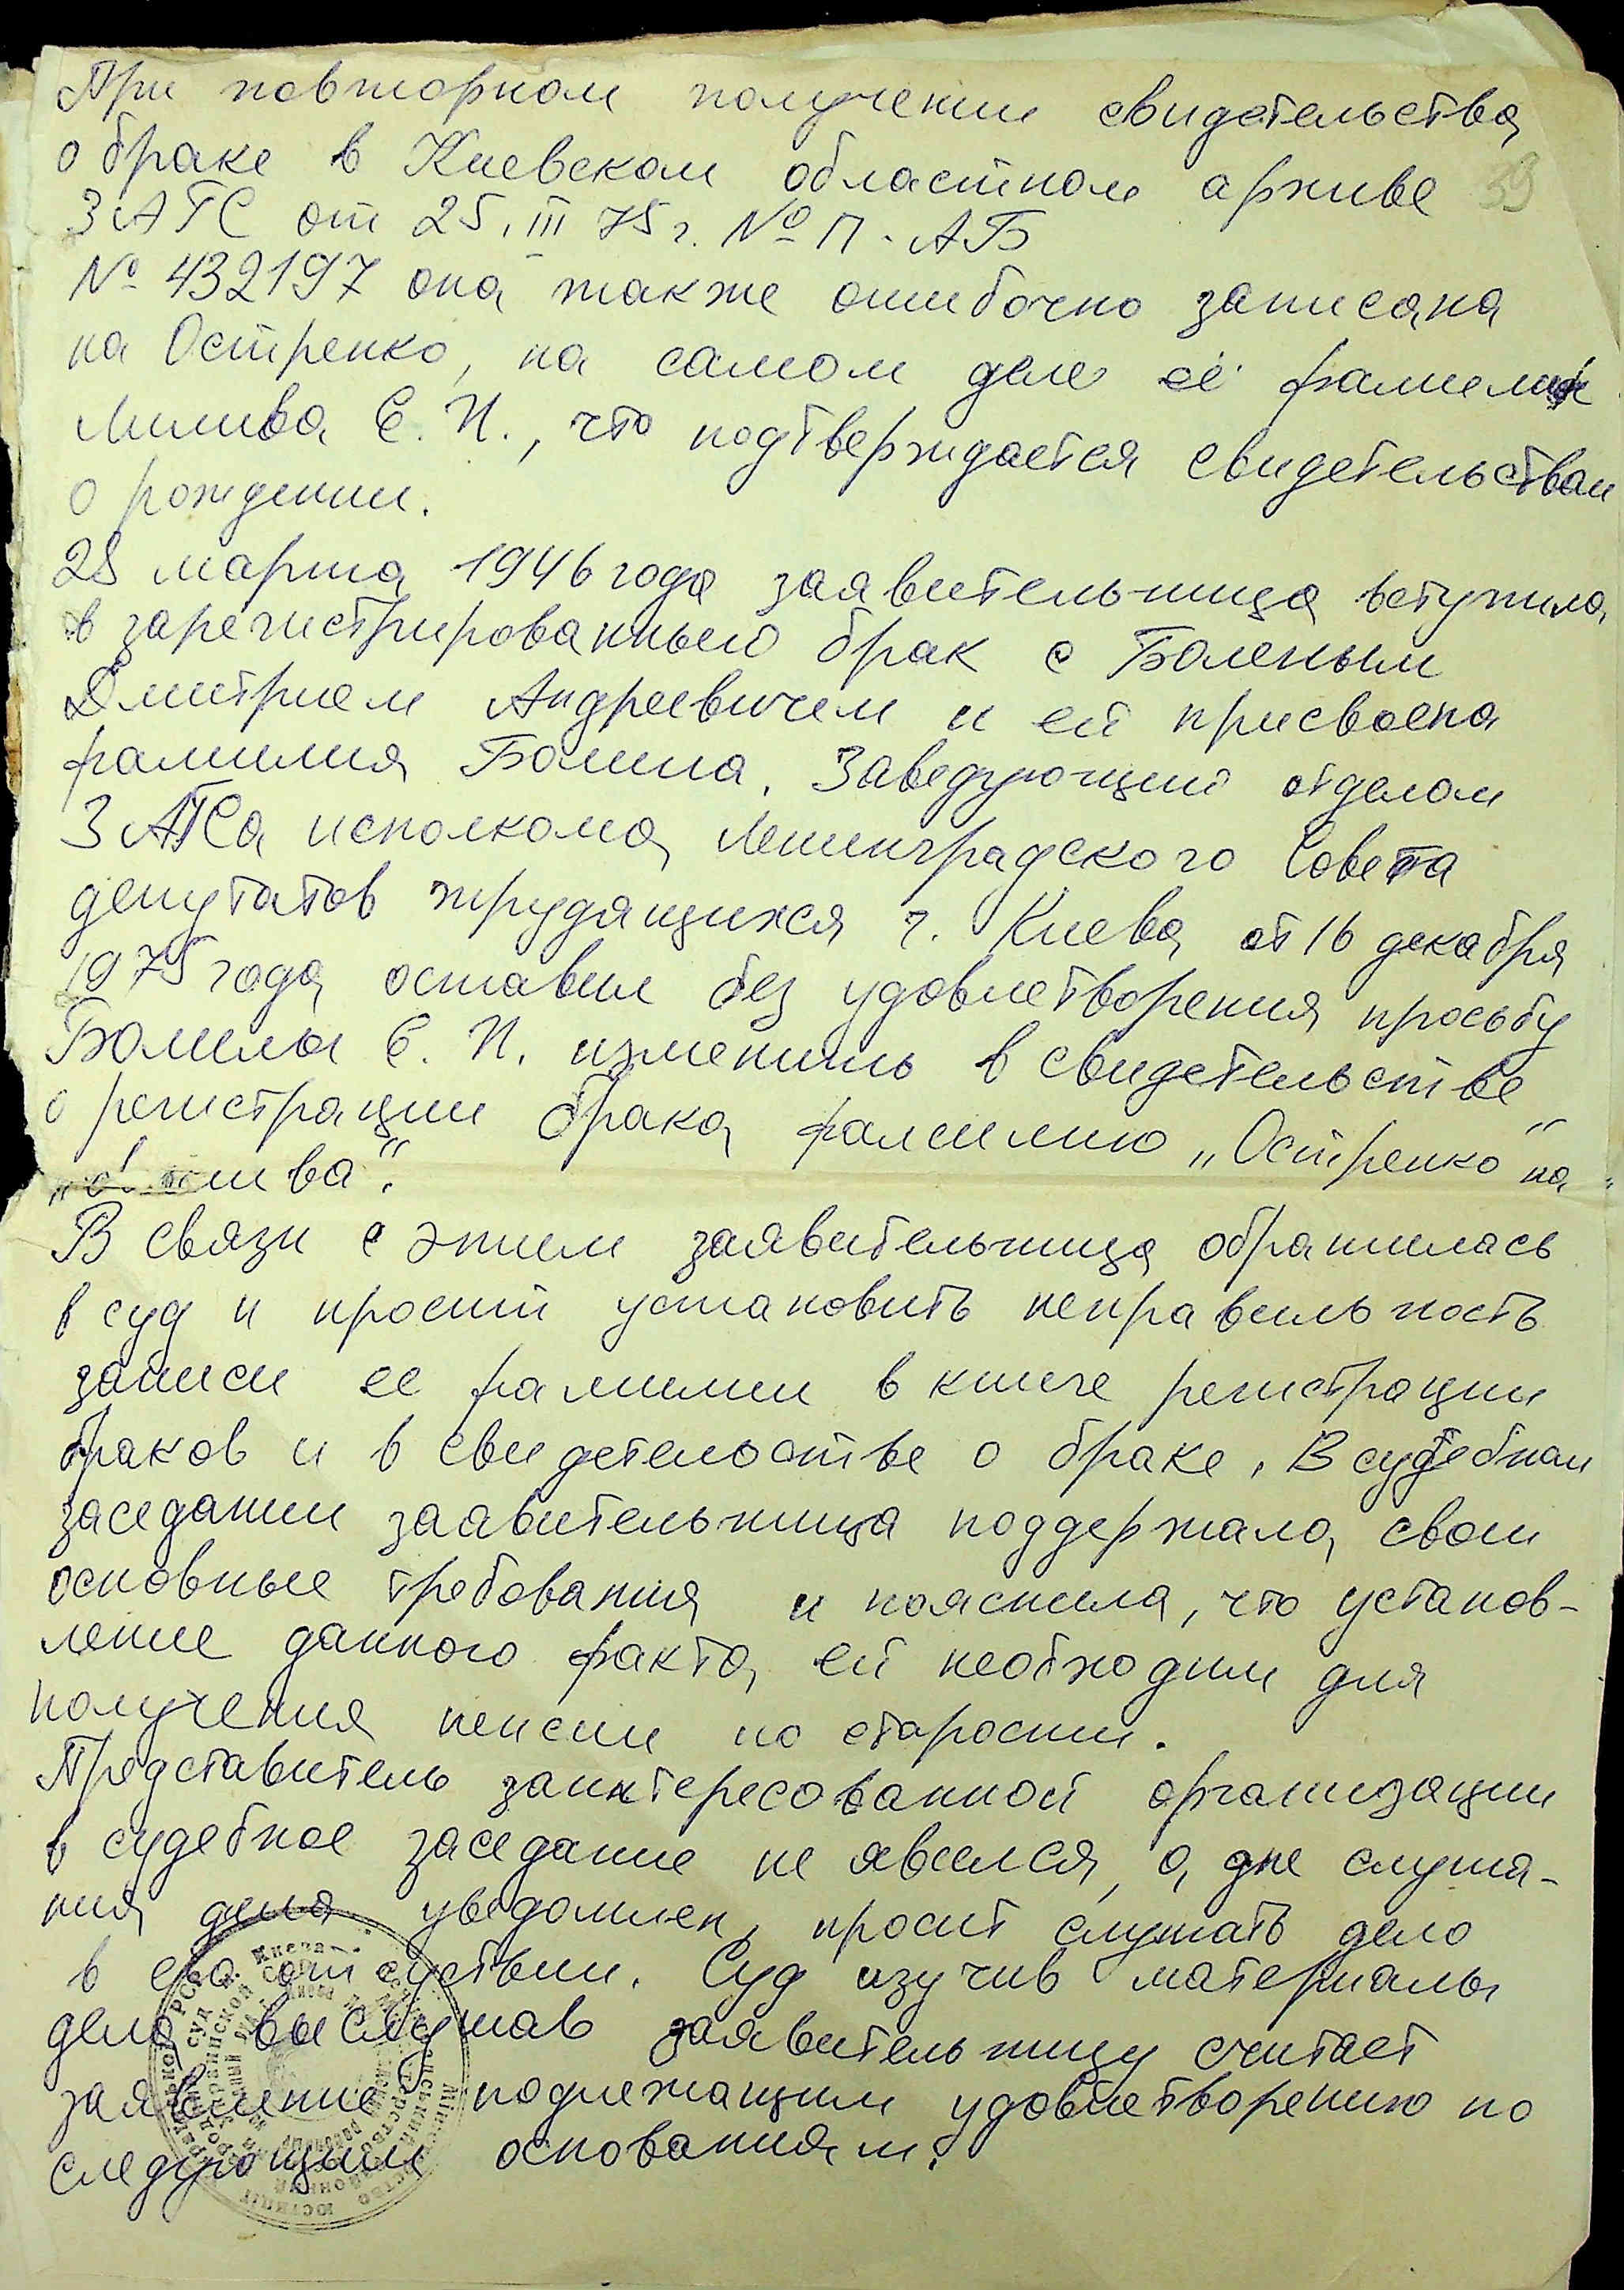 При повторном получении свидетельства
о браке в Киевском областном архиве 59
ЗАГС от 25.III 75 г. № П-АБ
№ 432197 она также ошибочно записана
на Остренко, на самом деле её фамилия
Милива Е. И., что подтверждается свидетельством
о рождении.
28 марта 1946 года заявительница вступила
в зарегистрированный брак с
Дмитрием Андреевичем и ей присвоена
фамилия . Заведующий отделом
ЗАГСа исполкома Ленинградского Совета
депутатов трудящихся г. Киева от 16 декабря
1975 года оставил без удовлетворения просьбу
Е. И. изменить в свидетельстве
о регистрации брака фамилию „Остренко" на
В связи с этим заявительница обратилась
в суд и просит установить неправильность
записи ее фамилии в книге регистрации
браков и в свидетельстве о браке. В судебном
заседании заявительница поддержала свои
основные требования и пояснила, что установ-
ление данного факта ей необходим для
получения пенсии по старости.
Представитель заинтересованной организации
в судебное заседание не явился, о дне слуша-
ния дела уведомлен, просит слушать дело
в его отсутствии. Суд изучив материалы
дела, выслушав заявительницу считает
заявление подлежащим удовлетворению по
следующим основаниям: